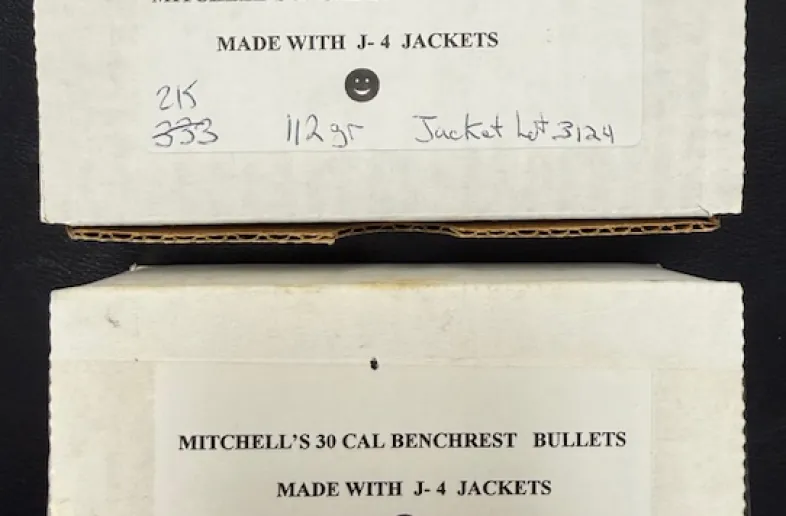 MADE WITH J- 4 JACKETS
2K
333 112 gr Jacket Lot 3124
MITCHELL'S 30 CAL BENCHREST BULLETS
MADE WITH J- 4 JACKETS